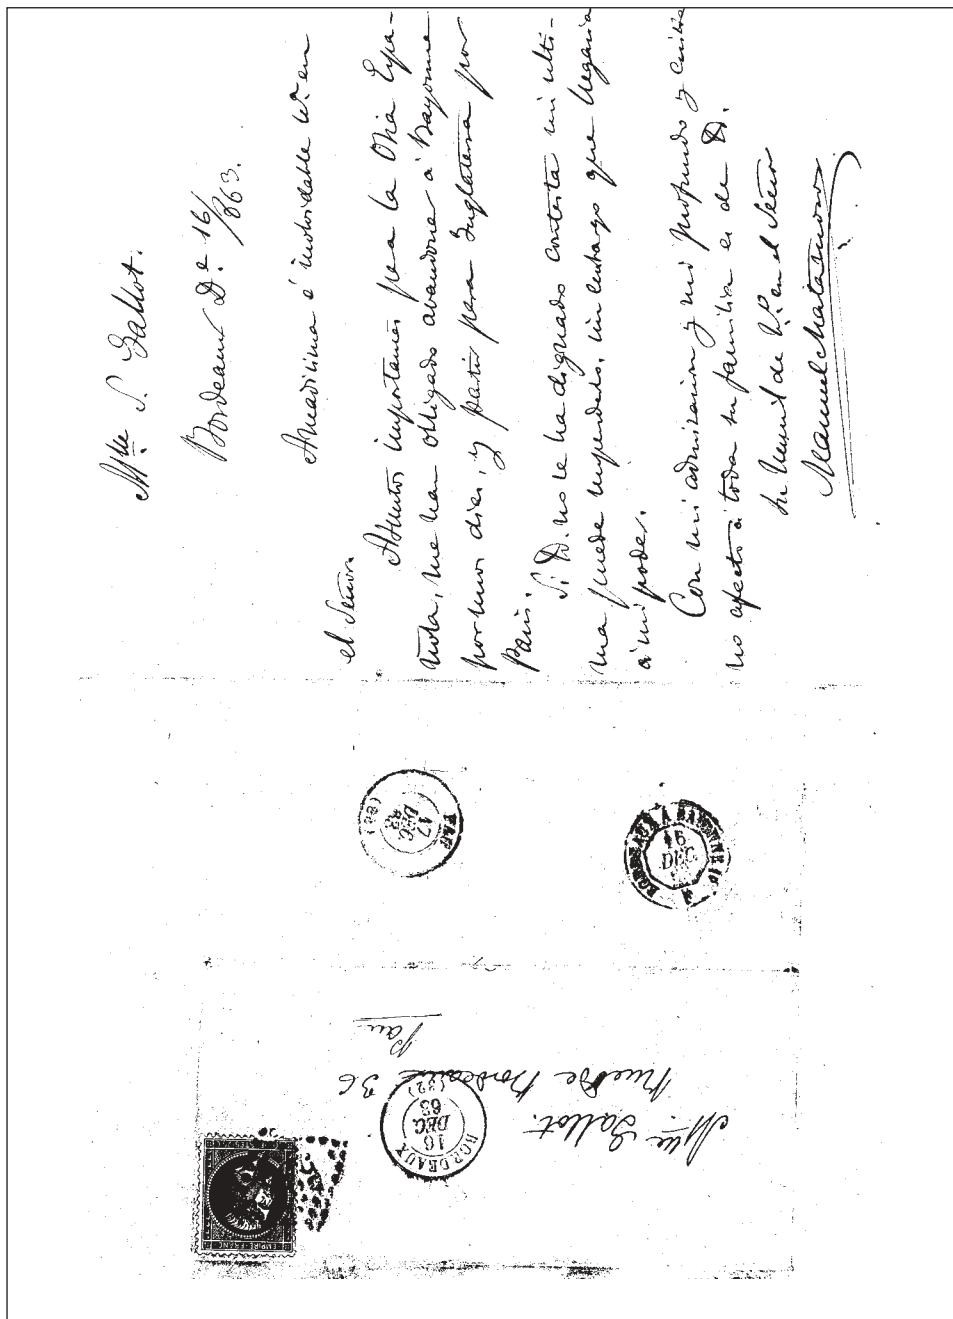 Mlle S. Gallot.
Bordeaux De. 16/863.
Amadisima é inolvidable Ha. en
el Señor.
Asuntos importantes para la Obra Espa-
ñola, me han obligado abandonar á Bayonne
por unos dias, y partir para Inglaterra por
Paris.
Si V. no se ha dignado contestar mi ulti-
ma puede suspenderlo, sin embargo que llegaria
a mi poder.
Con mi admiracion y mi profundo y
no afecto a toda su familia es de V.
su de V. en el Señor
Manuel Matamoros
PAU
17
DEC.
63
BORDEAUX A BAYONNE
16
DEC
Mlle Gallot.
Rue de Bordeaux 36
Pau
BORDEAUX
16
DEC.
63
(32)
EMPIRE FRANC